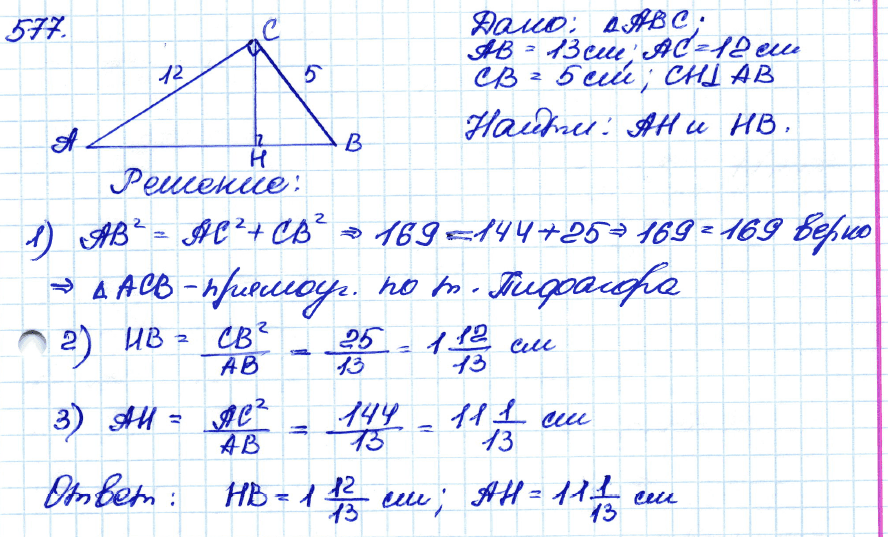 577.
C
12
5
A
H
B
Дано: △ABC;
AB = 13 см; AC = 12 см
CB = 5 см; CH⊥AB
Найти: AH и HB.
Решение:
1) AB² = AC² + CB² ⇒ 169 = 144 + 25 ⇒ 169 = 169 верно
⇒ △ACB - прямоуг. по т. Пифагора
2) HB = CB²/AB = 25/13 = 1 12/13 см
3) AH = AC²/AB = 144/13 = 11 1/13 см
Ответ: HB = 1 12/13 см; AH = 11 1/13 см